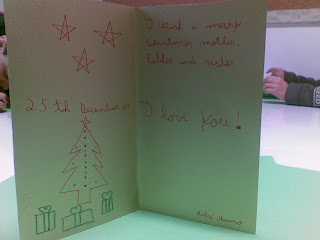 25th December
I wish a merry
christmas mother,
Father and sister
I love You!